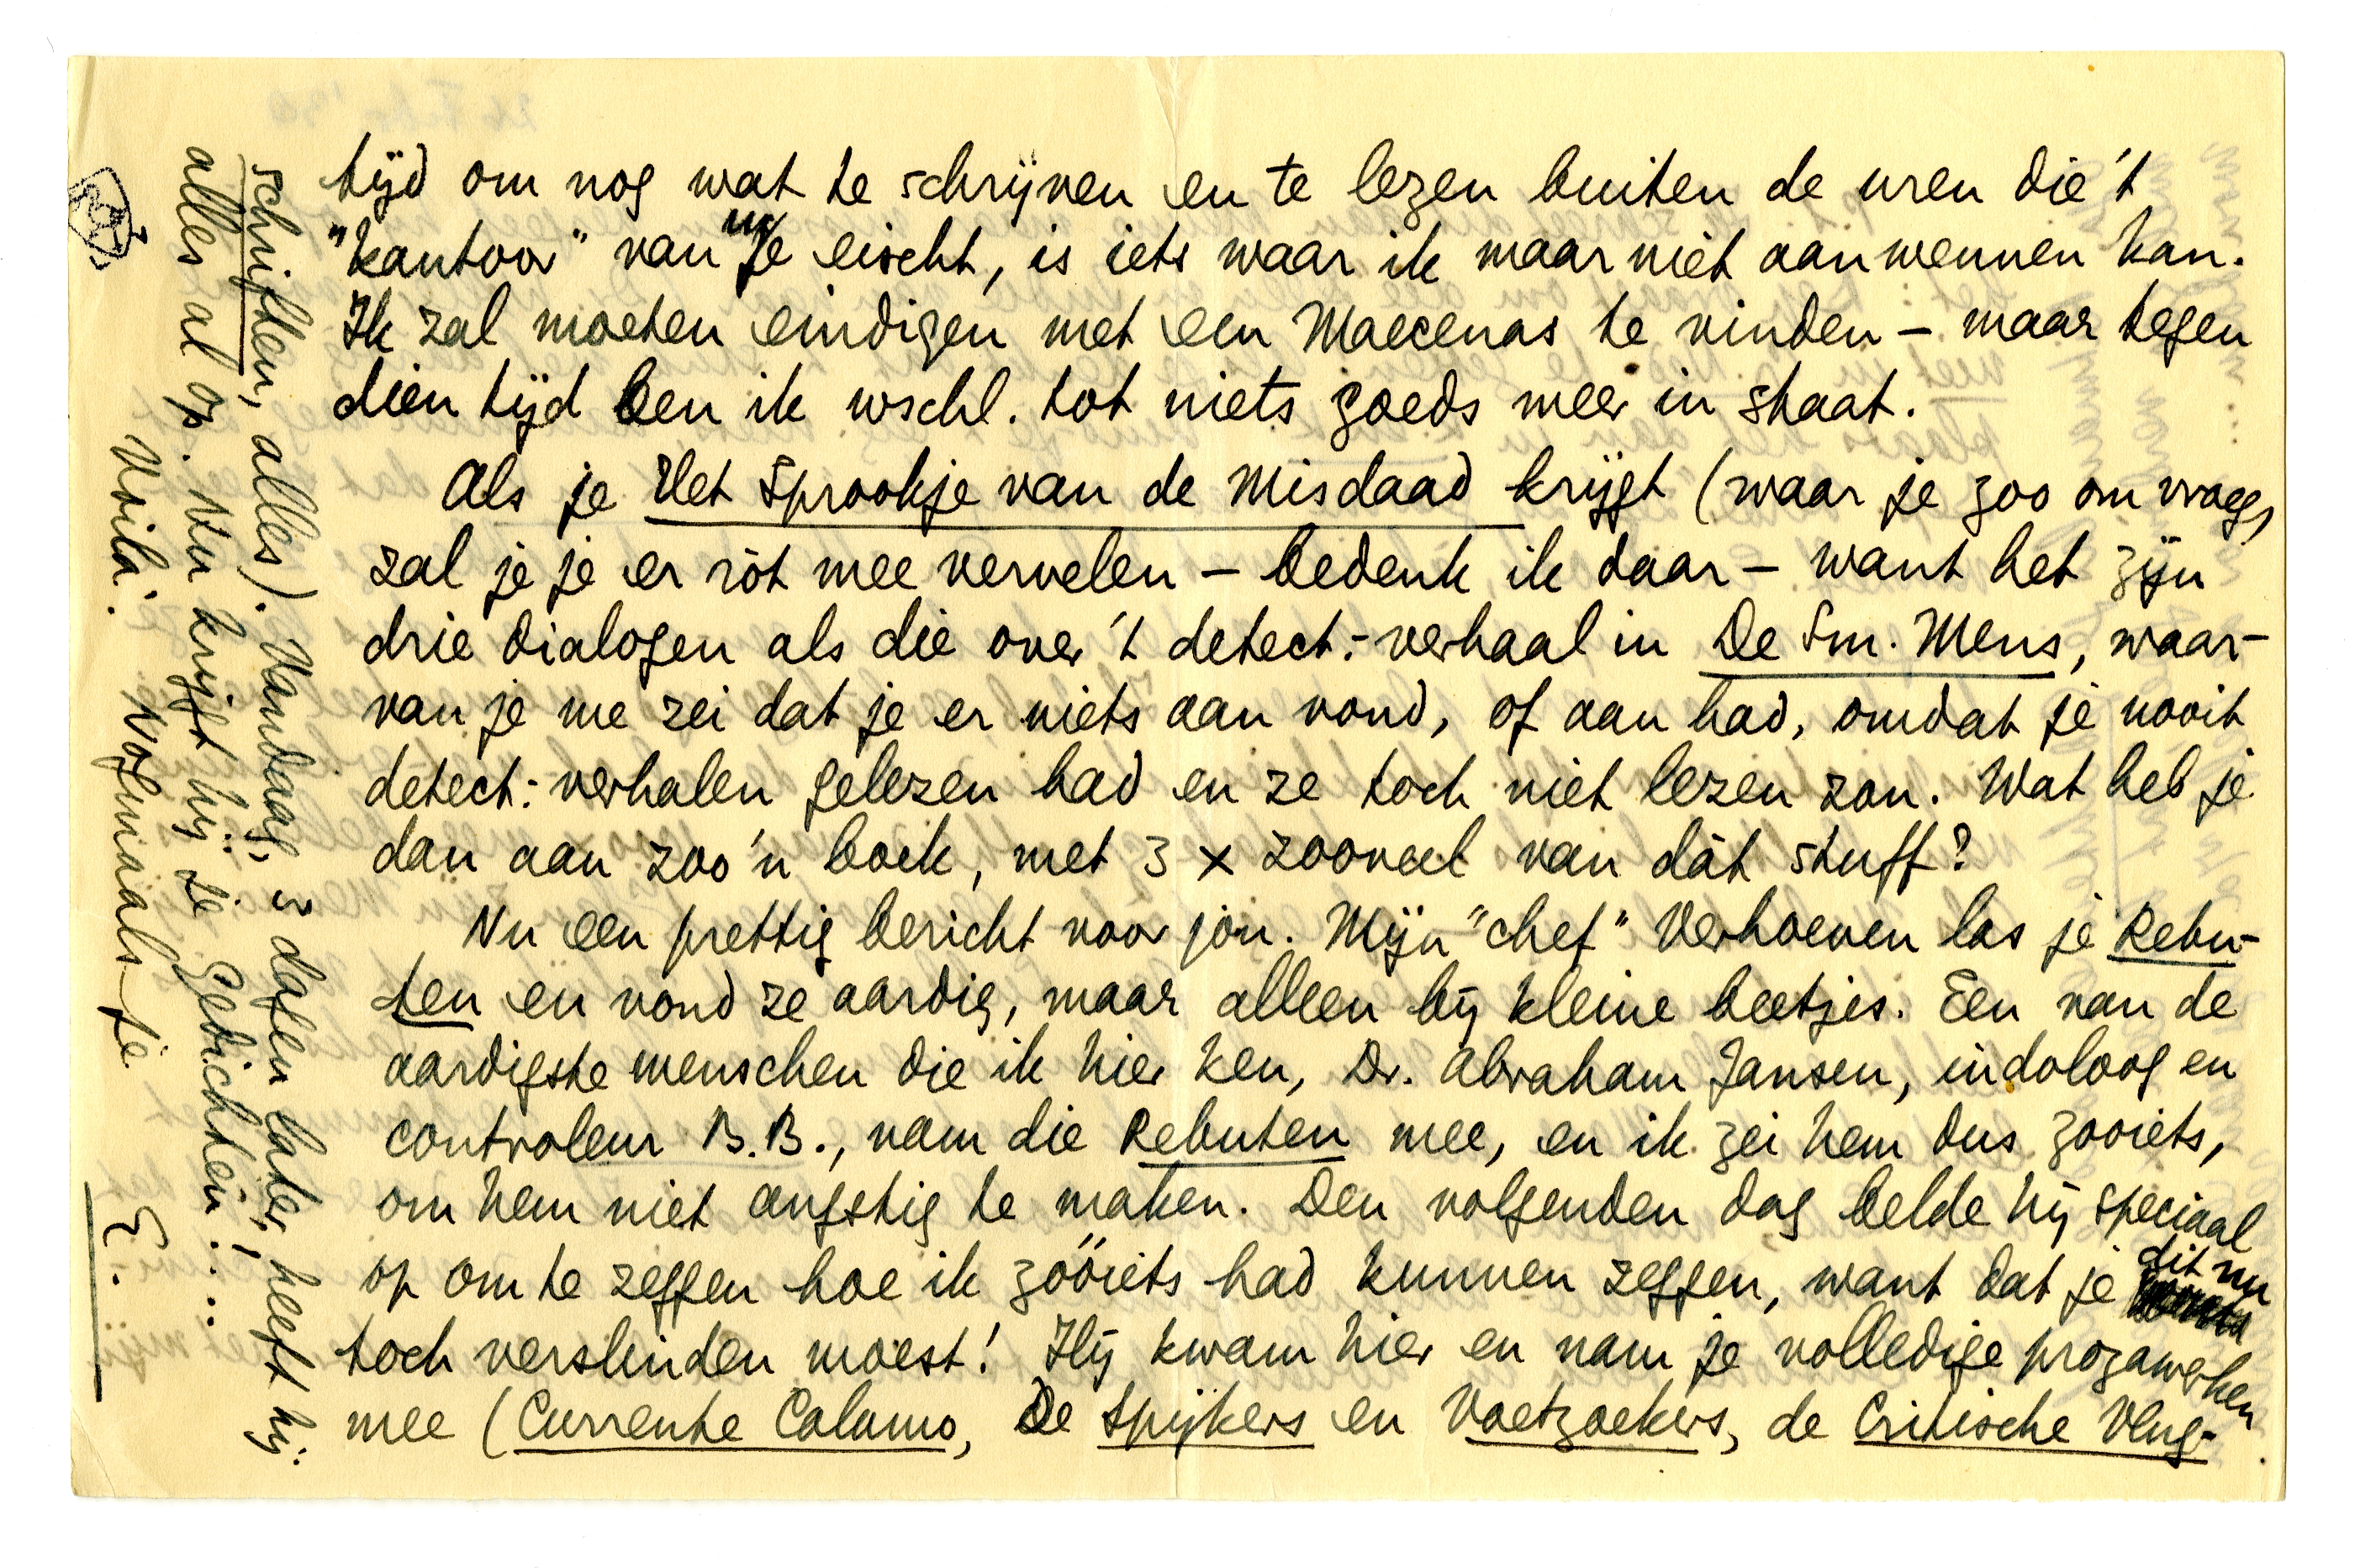 tijd om nog wat te schrijven en te lezen buiten de uren die 't
"kantoor" van me eischt, is iets waar ik maar niet aan wennen kan.
Ik zal moeten eindigen met een Maecenas te vinden – maar tegen
dien tijd ben ik wschl. tot niets goeds meer in staat.
Als je Het Sprookje van de Misdaad krijgt (waar je zoo om vraagt)
zal je je er ròt mee vervelen – bedenk ik daar – want het zijn
drie dialogen als die over 't detect.-verhaal in De Sm. Mens, waar-
van je me zei dat je er niets aan vond, of aan had, omdat je nooit
detect.-verhalen gelezen had en ze toch niet lezen zou. Wat heb je
dan aan zoo'n boek, met 3 x zooveel van dàt stuff?
Nu een prettig bericht voor jou. Mijn "chef" Verhoeven las je Rebu-
ten en vond ze aardig, maar alleen bij kleine beetjes. Een van de
aardigste menschen die ik hier ken, Dr. Abraham Jansen, indoloog en
controleur B.B., nam die Rebuten mee, en ik zei hem dus zooiets,
om hem niet angstig te maken. Den volgenden dag belde hij speciaal
op om te zeggen hoe ik zóóiets had kunnen zeggen, want dat je dit nu
toch verslinden moest! Hij kwam hier en nam je volledige prozawerken
mee (Currente Calamo, De Spijkers en Voetzoekers, de Critische Vlug-
schriften, alles). Vandaag, 2 dagen later, heeft hij
alles al op. Nu krijgt hij je Gedichten!....
Voilà. Nogmaals je
E.